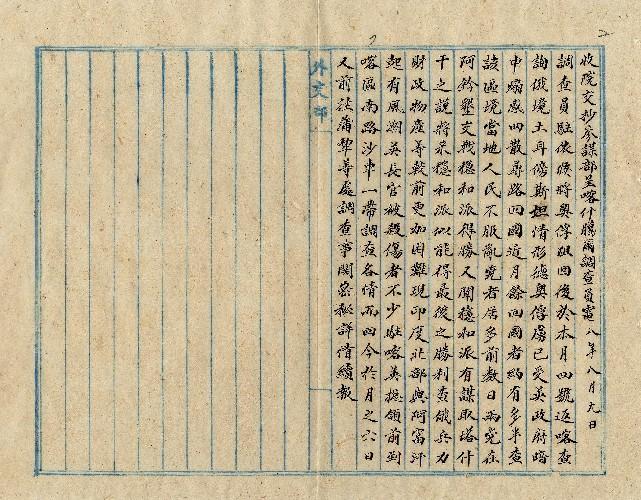 收院交抄參謀部呈喀什噶爾調查員電八年八月九日
調查員駐依俄將奧俘狙回後於本月四號返喀查
詢俄境土耳其斯坦情形德奧俘虜已受英政府暗
中煽惑四散尋路回國近月餘回國者約有多半查
該區境當地人民不服亂黨者居多前數日兩黨在
阿鈐墾交戰穩和派得勝又聞穩和派有謀取塔什
干之說將來穩和派似能得最後之勝利查俄兵力
財政物產等較前更加困難現印度北部與阿富汗
起有風潮英長官被殺傷者不少駐喀英提領前到
喀區南路沙車一帶調查各情而回今於月之六日
又前往蒲犂等處調查事關祕密詳情續報
外交部